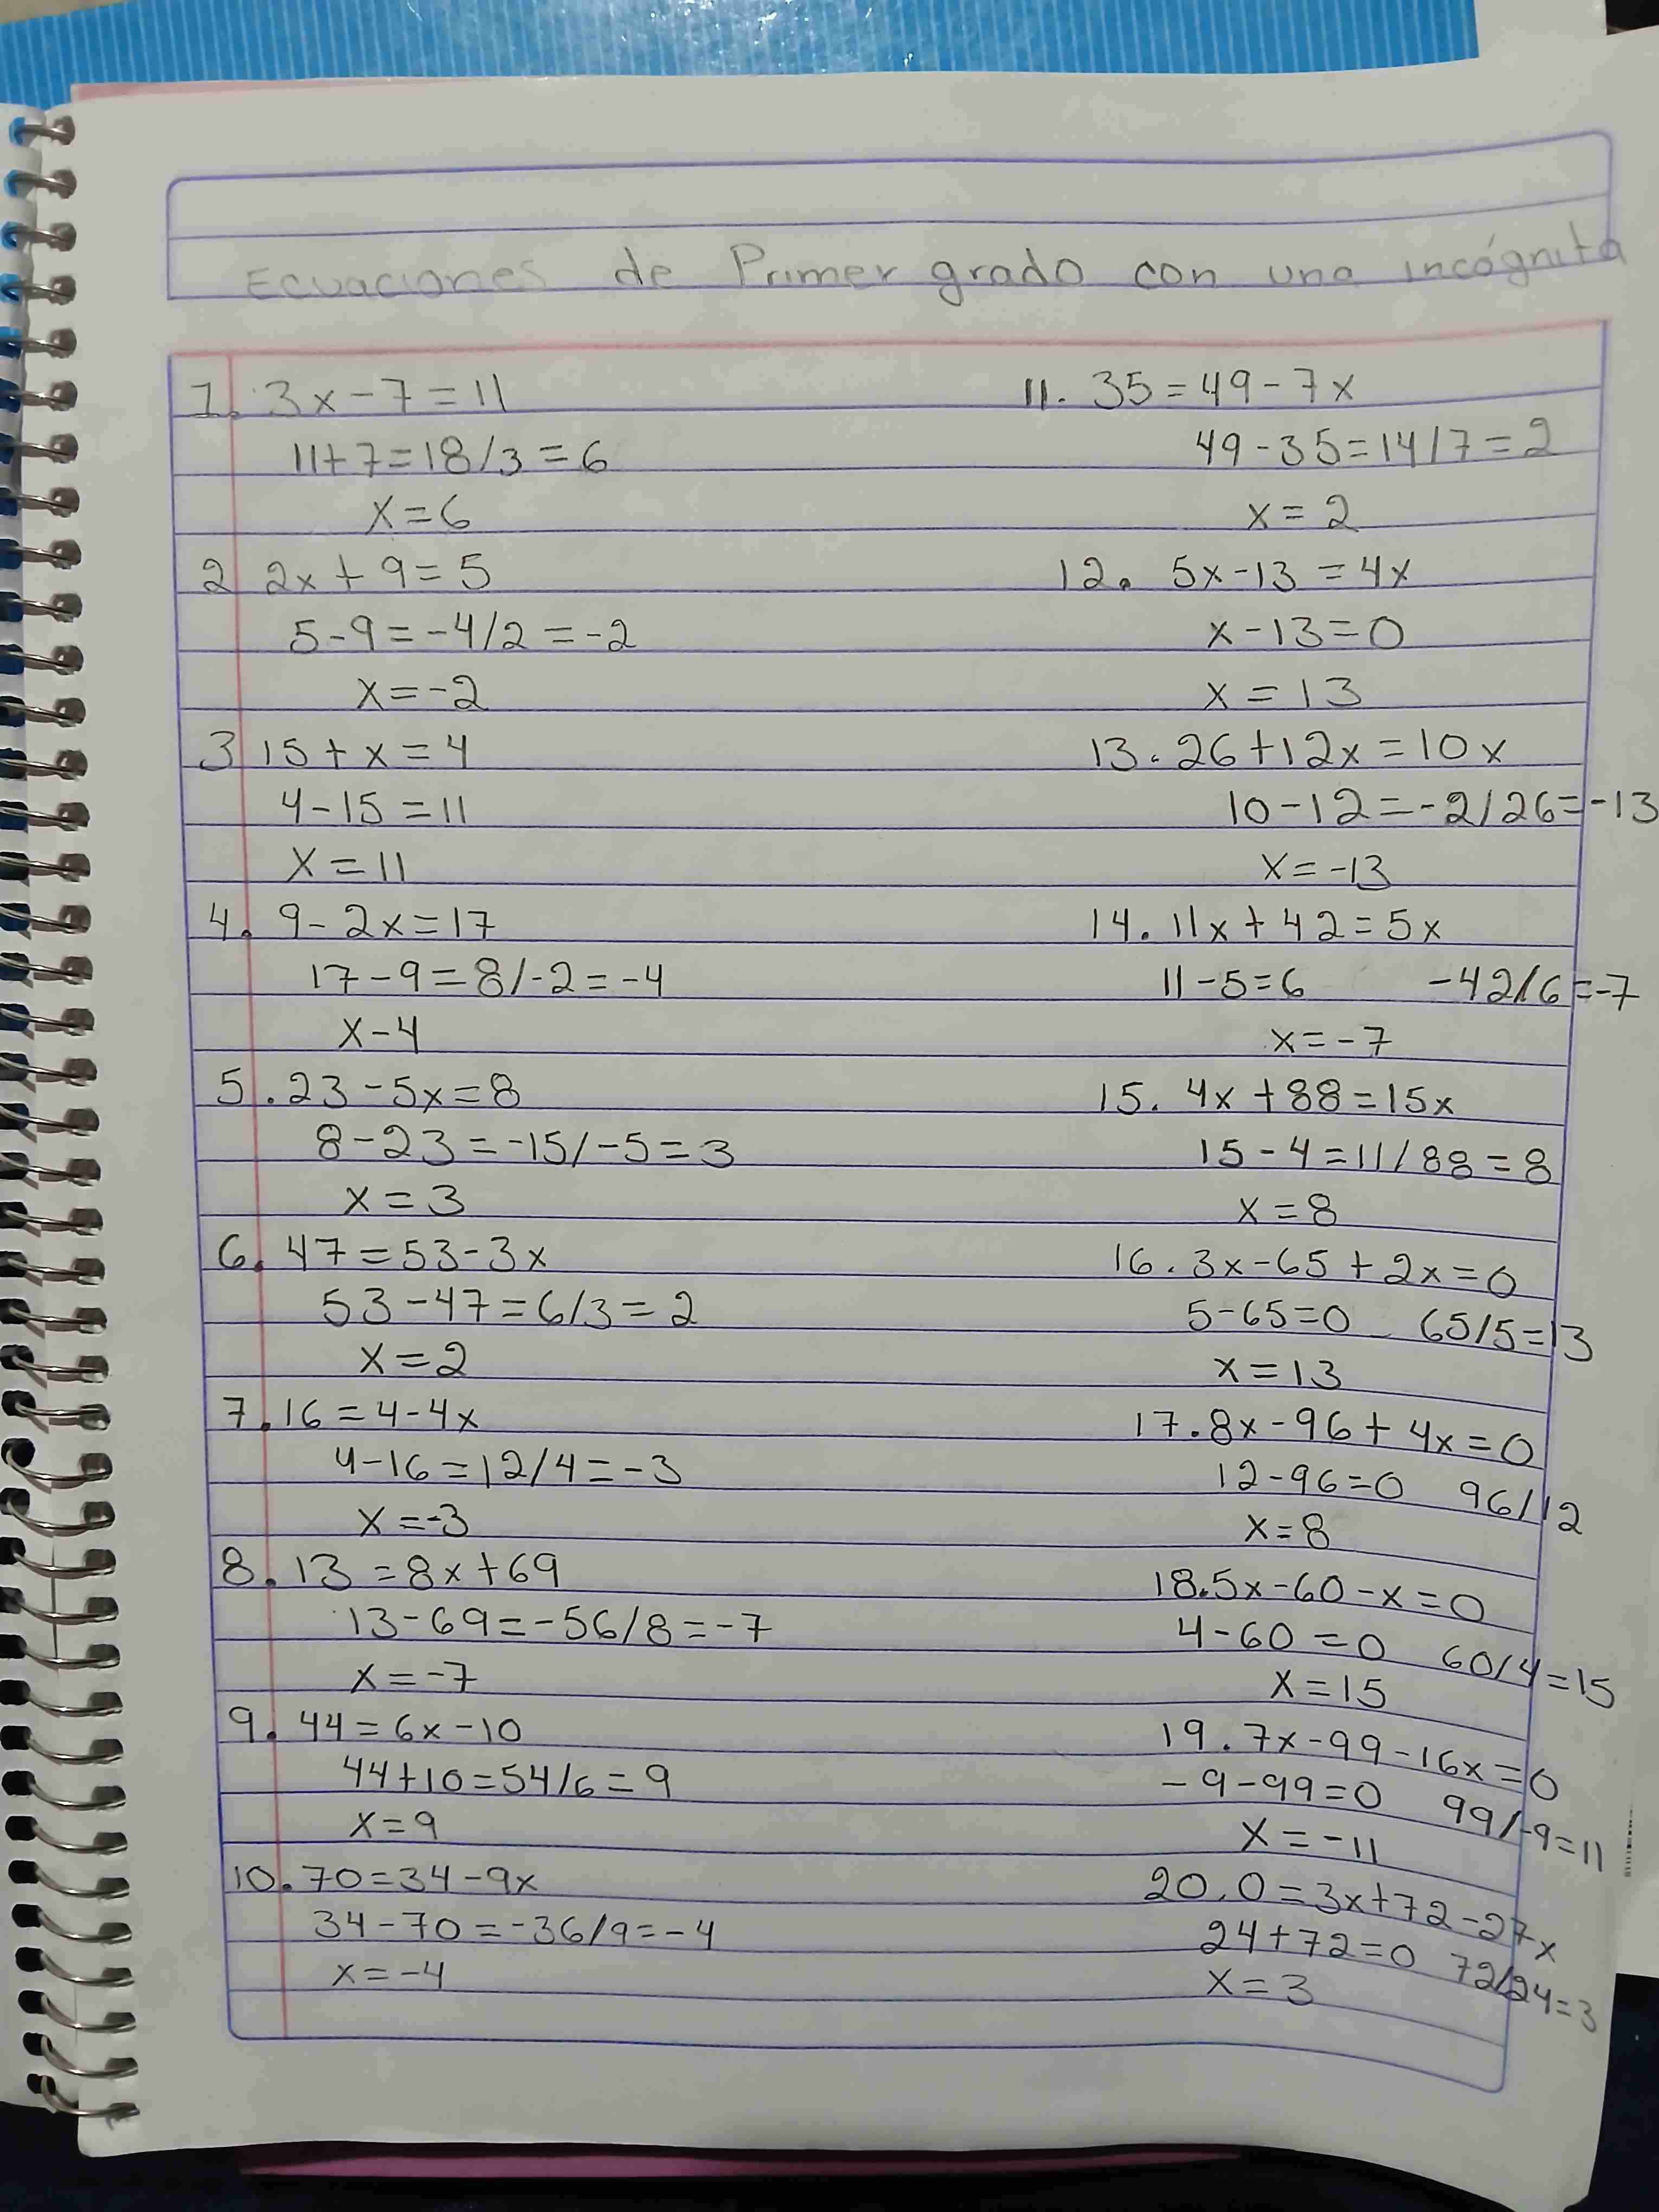 Ecuaciones de Primer grado con una incógnita
1. 3x-7=11
11+7=18/3=6
x=6
2 2x+9=5
5-9=-4/2=-2
x=-2
3 15+x=4
4-15=11
x=11
4. 9-2x=17
17-9=8/-2=-4
x-4
5. 23-5x=8
8-23=-15/-5=3
x=3
6. 47=53-3x
53-47=6/3=2
x=2
7. 16=4-4x
4-16=12/4=-3
x=-3
8. 13=8x+69
13-69=-56/8=-7
x=-7
9. 44=6x-10
44+10=54/6=9
x=9
10. 70=34-9x
34-70=-36/9=-4
x=-4
11. 35=49-7x
49-35=14/7=2
x=2
12. 5x-13=4x
x-13=0
x=13
13. 26+12x=10x
10-12=-2/26=-13
x=-13
14. 11x+42=5x
11-5=6 -42/6=-7
x=-7
15. 4x+88=15x
15-4=11/88=8
x=8
16. 3x-65+2x=0
5-65=0 65/5=13
x=13
17. 8x-96+4x=0
12-96=0 96/12
x=8
18. 5x-60-x=0
4-60=0 60/4=15
x=15
19. 7x-99-16x=0
-9-99=0 99/-9=11
x=-11
20. 0=3x+72-27x
24+72=0 72/24=3
x=3